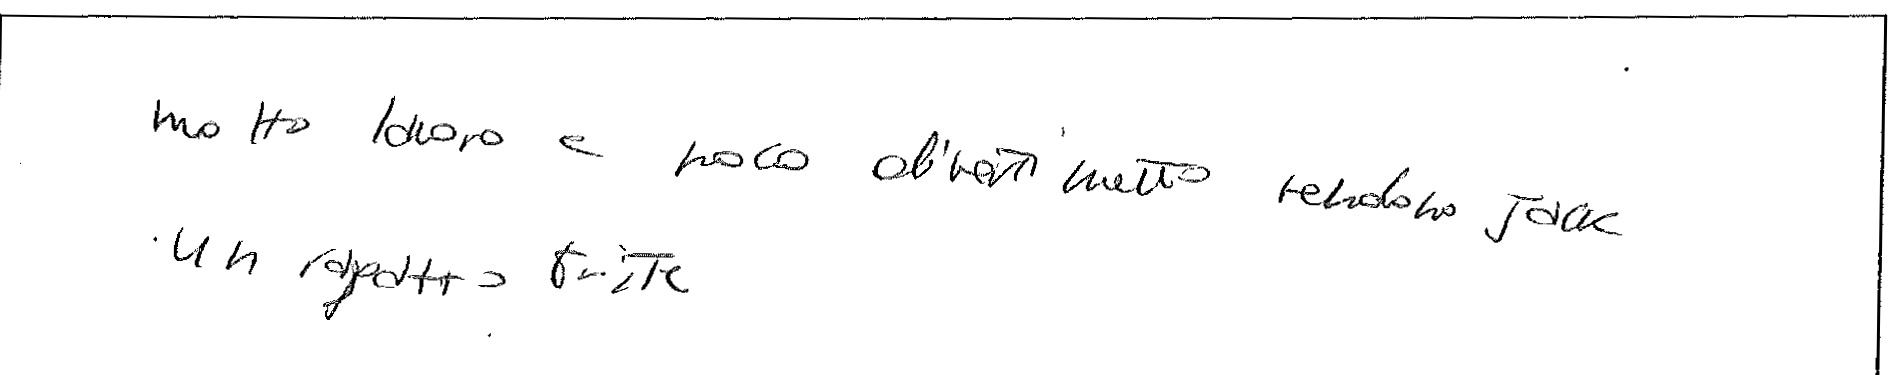 molto lavoro e poco divertimetto rendono Jack
un ragatto triste